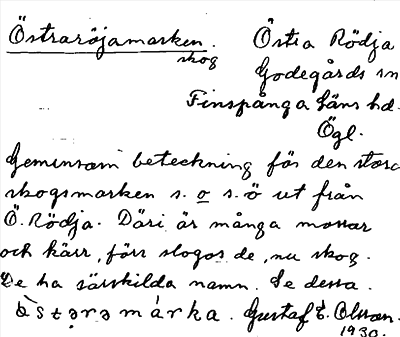 Östraröjamarken.
skog
Östra Rödja
Godegårds sn
Finspånga läns hd.
Ögl.
Gemensam beteckning för den stora
skogsmarken s. o s. ö ut från
Ö. Rödja. Däri är många mossar
och kärr, förr slogos de, nu skog.
De ha särskilda namn. Se dessa.
Gustaf E. Olsson.
1930.